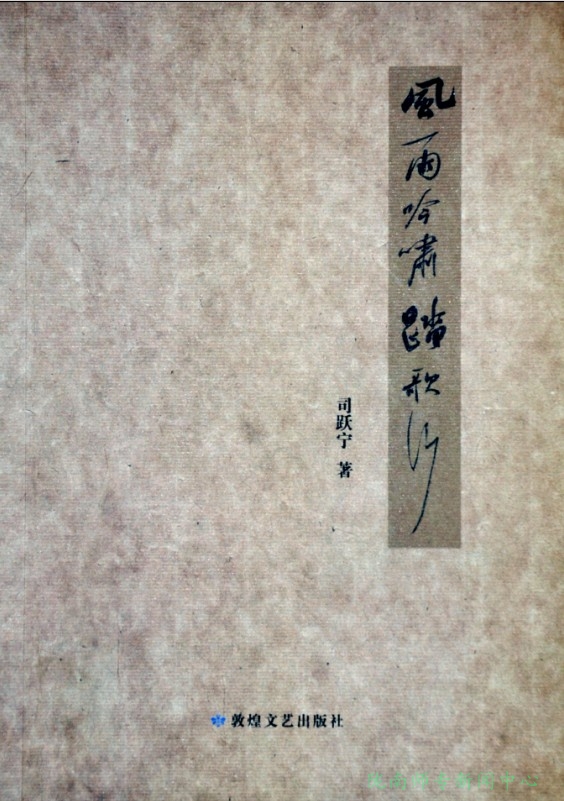 風雨吟嘯踏歌行
司跃宁 著
敦煌文艺出版社